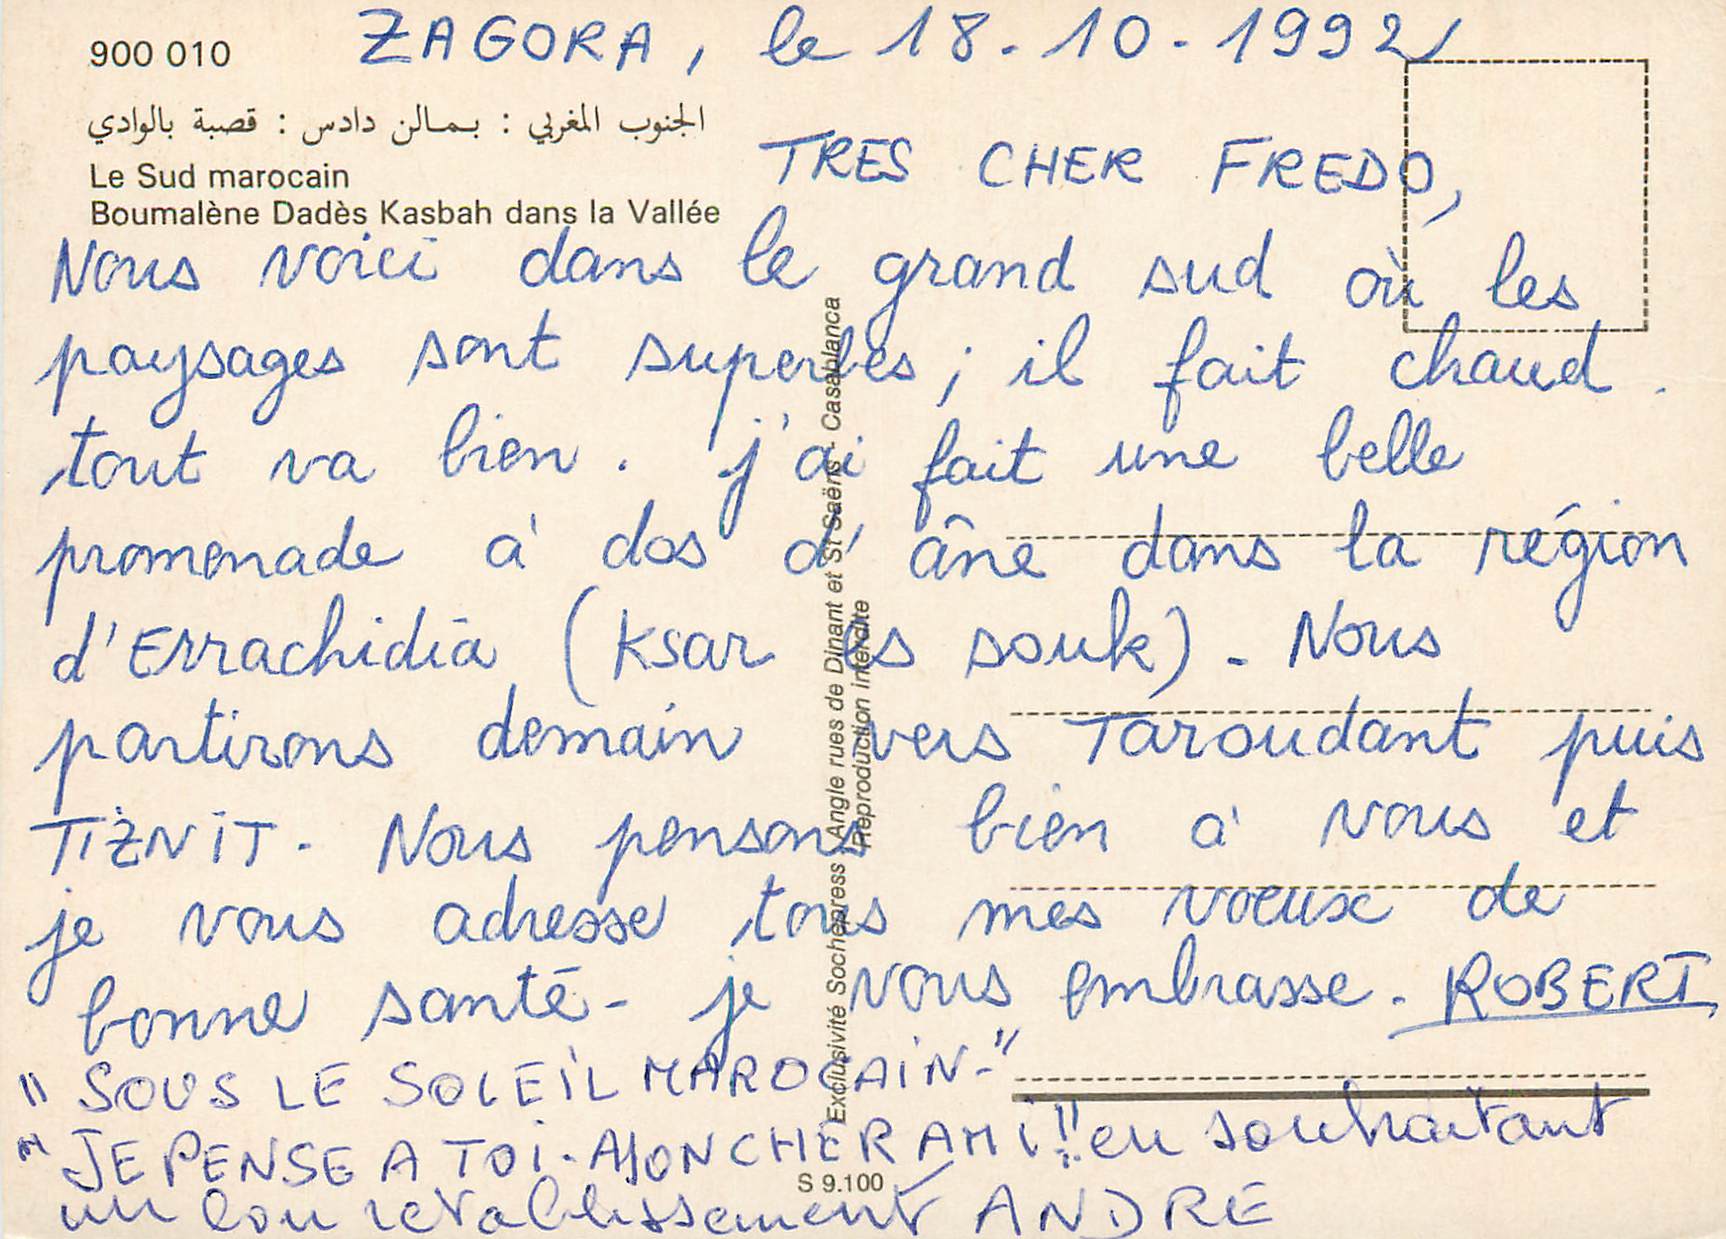 ZAGORA, le 18.10.1992
900 010
الجنوب المغربي : بـمـالن دادس : قصبة بالوادي
Le Sud marocain
Boumalène Dadès Kasbah dans la Vallée
TRES CHER FREDO,
Nous voici dans le grand sud où les
paysages sont superbes ; il fait chaud.
tout va bien. j'ai fait une belle
promenade à dos d'âne dans la région
d'Errachidia (Ksar es souk). Nous
partirons demain vers Taroudant puis
TIZNIT. Nous pensons bien à vous et
je vous adresse tous mes voeux de
bonne santé - je vous embrasse. ROBERT
"SOUS LE SOLEIL MAROCAIN-"
"JE PENSE A TOI. MON CHER AMI!! en souhaitant
un bon retablissement ANDRE
Exclusivité Sochepress Angle rues de Dinant et St Saëns - Casablanca
Reproduction interdite
S 9.100